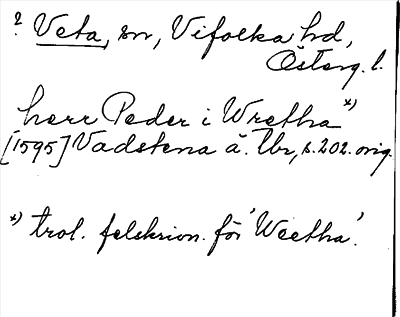 ? Veta, sn, Vifolka hd,
Österg. l.
herr Peder i Wretha x)
[1595] Vadstena ä. Tbr, s. 202. orig.
x) trol. felskrivn. för 'Weetha'.